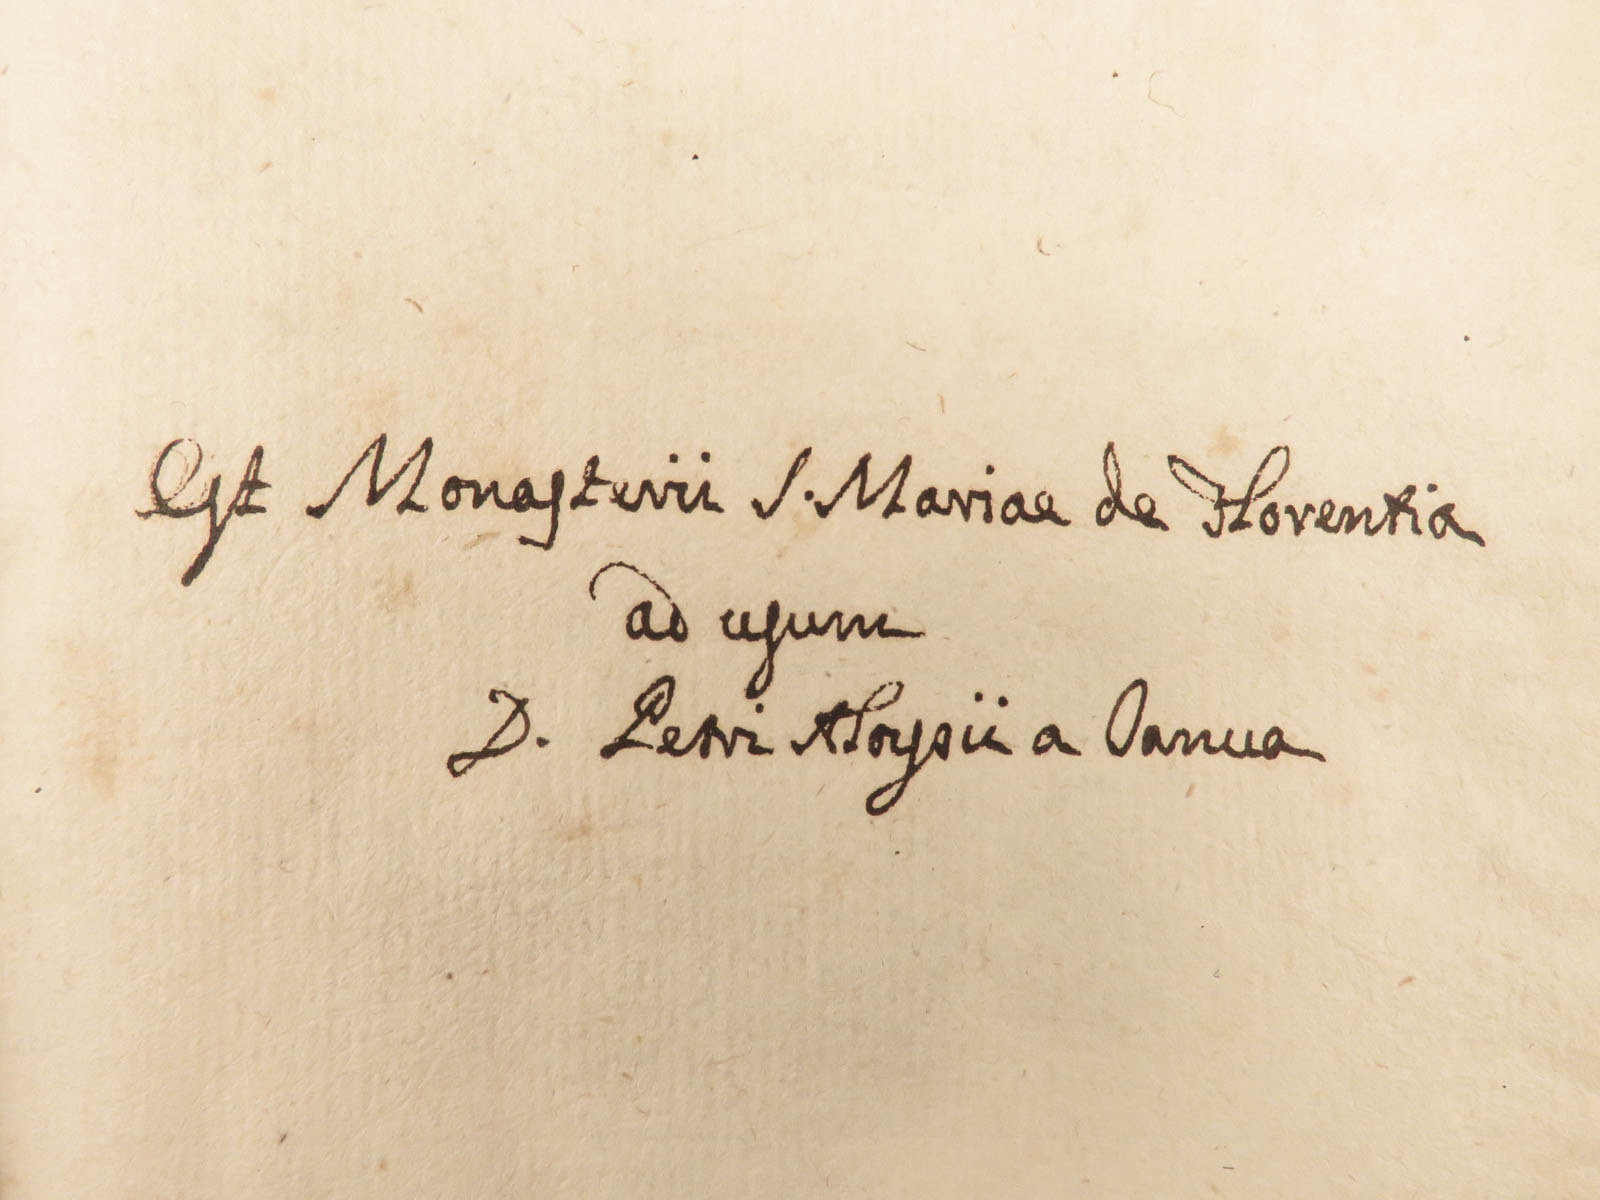 Est Monasterii S. Mariae de Florentia
ad usum
D. Petri Aloysii a Ianua